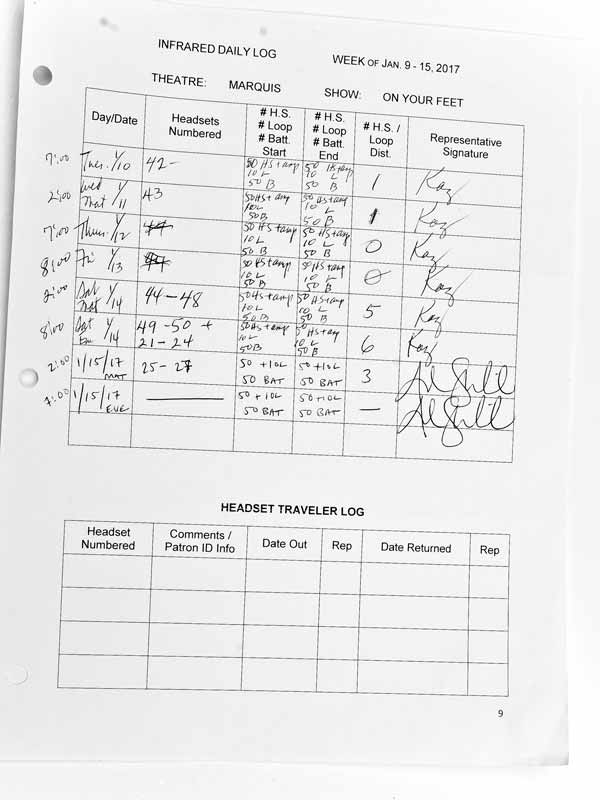 INFRARED DAILY LOG WEEK OF JAN. 9 - 15, 2017
THEATRE: MARQUIS SHOW: ON YOUR FEET
Day/Date Headsets Numbered # H.S. # Loop # Batt. Start # H.S. # Loop # Batt. End # H.S. / Loop Dist. Representative Signature
7:00 Tues. 1/10 42- 50 HS+amp 10 L 50 B 50 HS+amp 10 L 50 B 1 Kay
2:00 Wed Mat 1/11 43 50 HS+amp 10 L 50 B 50 HS+amp 10 L 50 B 1 Kay
7:00 Thurs. 1/12 44 50 HS+amp 10 L 50 B 50 HS+amp 10 L 50 B 0 Kay
8:00 Fri 1/13 44 50 HS+amp 10 L 50 B 50 HS+amp 10 L 50 B 0 Kay
2:00 Sat Mat 1/14 44-48 50 HS+amp 10 L 50 B 50 HS+amp 10 L 50 B 5 Kay
8:00 Sat Eve 1/14 49-50 + 21-24 50 HS+amp 10 L 50 B 50 HS+amp 10 L 50 B 6 Kay
2:00 1/15/17 MAT 25-27 50 +10L 50 BAT 50 +10L 50 BAT 3
7:00 1/15/17 EVE 50 +10L 50 BAT 50 +10L 50 BAT —
HEADSET TRAVELER LOG
Headset Numbered Comments / Patron ID Info Date Out Rep Date Returned Rep
9